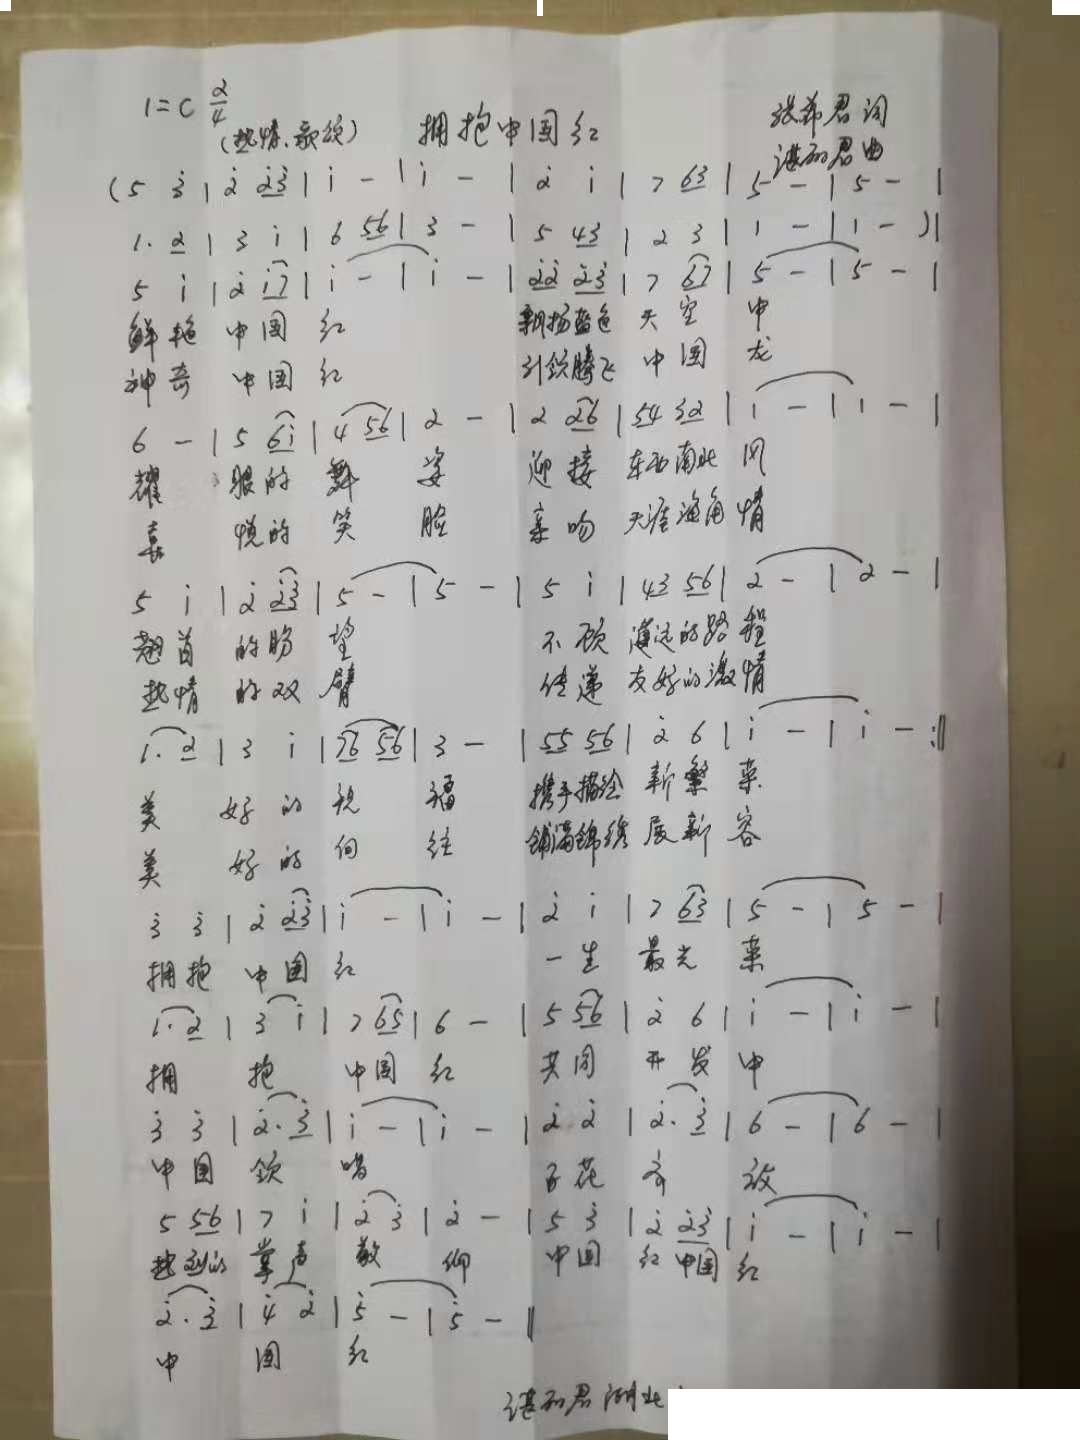 1=C 2/4
(热情、歌颂) 拥抱中国红 君词
君曲
(5 3̇ | 2̇ 2̇3̇ | i - | i - | 2̇ i | 7 63 | 5 - | 5 - |
1. 2 | 3 i | 6 56 | 3 - | 5 43 | 2 3 | 1 - | 1 - )|
5 i | 2̇ i7 | i - | i - | 2̇2̇ 2̇3̇ | 7 67 | 5 - | 5 - |
鲜艳 中国 红 飘扬蓝色 天空 中
神奇 中国 红 引领腾飞 中国 龙
6 - | 5 6i | 4 56 | 2 - | 2 26 | 54 32 | 1 - | 1 - |
耀 眼的 舞 姿 迎接 东西南北 风
喜 悦的 笑 脸 亲吻 天涯海角 情
5 i | 2̇ 2̇3̇ | 5 - | 5 - | 5 i | 43 56 | 2 - | 2 - |
翘首 的盼 望 不顾 遥远的路 程
热情 的双 臂 传递 友好的激 情
1. 2 | 3 i | 76 56 | 3 - | 55 56 | 2̇ 6 | i - | i - :‖
美 好的祝 福 携手描绘 新繁 荣
美 好的向 往 铺满锦绣 展新 容
3̇ 3̇ | 2̇ 2̇3̇ | i - | i - | 2̇ i | 7 63 | 5 - | 5 - |
拥抱 中国 红 一生 最光 荣
1. 2 | 3 i | 7 65 | 6 - | 5 56 | 2̇ 6 | i - | i - |
拥 抱 中国 红 共同 开发 中
3̇ 3̇ | 2̇. 3̇ | i - | i - | 2̇ 2̇ | 2̇. 3̇ | 6 - | 6 - |
中国 领 唱 百花 齐 放
5 56 | 7 i | 2̇ 3̇ | 2̇ - | 5 3̇ | 2̇ 2̇3̇ | i - | i - |
热烈的 掌声 敬 仰 中国 红 中国 红
2̇. 3̇ | 4̇ 2̇ | 5̇ - | 5̇ - ‖
中 国 红
君 湖北